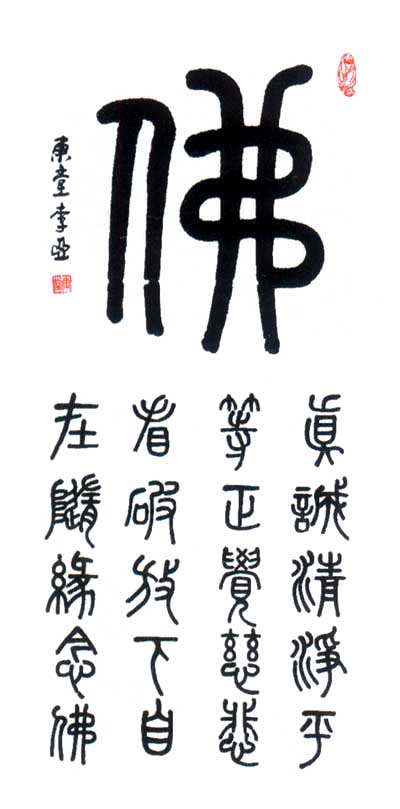 佛
眞誠清淨平
等正覺慈悲
看破放下自
在隨緣念佛
東 李